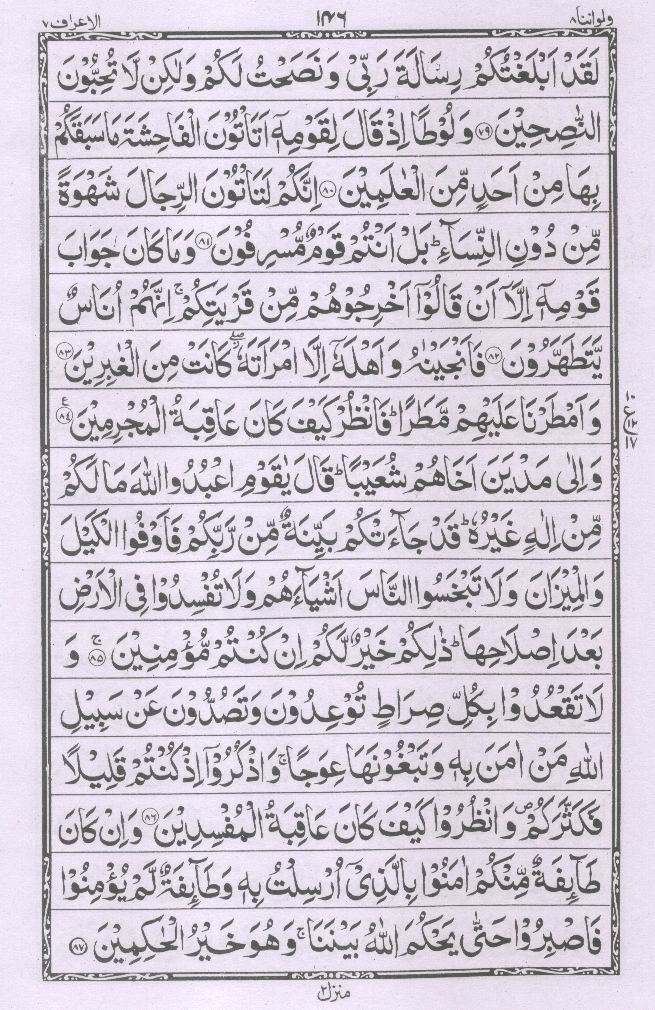 ولواننا ٨ ١٤٦ الاعراف ٧
لَقَدْ اَبْلَغْتُكُمْ رِسَالَةَ رَبِّيْ وَنَصَحْتُ لَكُمْ وَلٰكِنْ لَّا تُحِبُّوْنَ
النّٰصِحِيْنَ ﴿٧٩﴾ وَلُوْطًا اِذْ قَالَ لِقَوْمِهٖۤ اَتَاْتُوْنَ الْفَاحِشَةَ مَا سَبَقَكُمْ
بِهَا مِنْ اَحَدٍ مِّنَ الْعٰلَمِيْنَ ﴿٨٠﴾ اِنَّكُمْ لَتَاْتُوْنَ الرِّجَالَ شَهْوَةً
مِّنْ دُوْنِ النِّسَآءِ ؕ بَلْ اَنْتُمْ قَوْمٌ مُّسْرِفُوْنَ ﴿٨١﴾ وَمَا كَانَ جَوَابَ
قَوْمِهٖۤ اِلَّاۤ اَنْ قَالُوْۤا اَخْرِجُوْهُمْ مِّنْ قَرْيَتِكُمْ ۚ اِنَّهُمْ اُنَاسٌ
يَّتَطَهَّرُوْنَ ﴿٨٢﴾ فَاَنْجَيْنٰهُ وَاَهْلَهٗۤ اِلَّا امْرَاَتَهٗ ۖ كَانَتْ مِنَ الْغٰبِرِيْنَ ﴿٨٣﴾
وَاَمْطَرْنَا عَلَيْهِمْ مَّطَرًا ؕ فَانْظُرْ كَيْفَ كَانَ عَاقِبَةُ الْمُجْرِمِيْنَ ﴿٨٤﴾ ع
وَاِلٰى مَدْيَنَ اَخَاهُمْ شُعَيْبًا ؕ قَالَ يٰقَوْمِ اعْبُدُوا اللّٰهَ مَا لَكُمْ
مِّنْ اِلٰهٍ غَيْرُهٗ ؕ قَدْ جَآءَتْكُمْ بَيِّنَةٌ مِّنْ رَّبِّكُمْ فَاَوْفُوا الْكَيْلَ
وَالْمِيْزَانَ وَلَا تَبْخَسُوا النَّاسَ اَشْيَآءَهُمْ وَلَا تُفْسِدُوْا فِي الْاَرْضِ
بَعْدَ اِصْلَاحِهَا ؕ ذٰلِكُمْ خَيْرٌ لَّكُمْ اِنْ كُنْتُمْ مُّؤْمِنِيْنَ ۚ ﴿٨٥﴾ وَ
لَا تَقْعُدُوْا بِكُلِّ صِرَاطٍ تُوْعِدُوْنَ وَتَصُدُّوْنَ عَنْ سَبِيْلِ
اللّٰهِ مَنْ اٰمَنَ بِهٖ وَتَبْغُوْنَهَا عِوَجًا ۚ وَاذْكُرُوْۤا اِذْ كُنْتُمْ قَلِيْلًا
فَكَثَّرَكُمْ ۪ وَانْظُرُوْا كَيْفَ كَانَ عَاقِبَةُ الْمُفْسِدِيْنَ ﴿٨٦﴾ وَاِنْ كَانَ
طَآئِفَةٌ مِّنْكُمْ اٰمَنُوْا بِالَّذِيْۤ اُرْسِلْتُ بِهٖ وَطَآئِفَةٌ لَّمْ يُؤْمِنُوْا
فَاصْبِرُوْا حَتّٰى يَحْكُمَ اللّٰهُ بَيْنَنَا ۚ وَهُوَ خَيْرُ الْحٰكِمِيْنَ ﴿٨٧﴾
منزل ٢